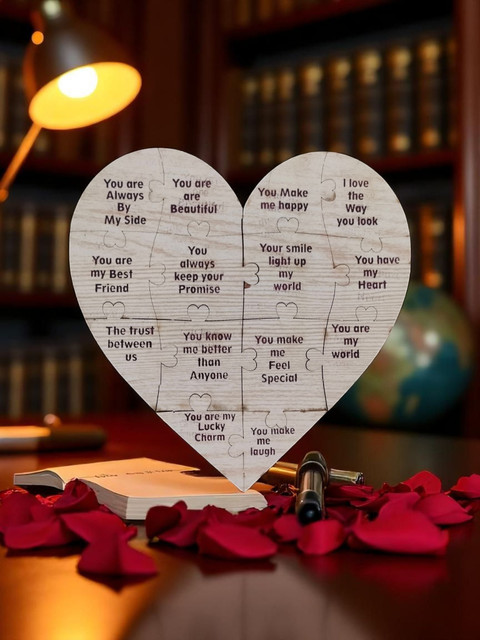 You are
Always
By
My Side
You are
are
Beautiful
You Make
me happy
I love
the
Way
you look
You are
my Best
Friend
You
always
keep your
Promise
Your smile
light up
my
world
You have
my
Heart
The trust
between
us
You know
me better
than
Anyone
You make
me
Feel
Special
You are
my
world
You are my
Lucky
Charm
You make
me
laugh